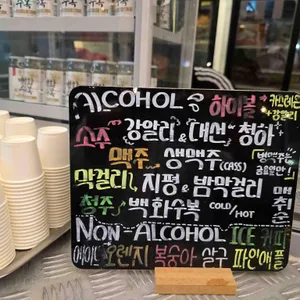 ALCOHOL 하이볼
소주 강알리 & 대선 청하
맥주 생맥주 (CASS)
막걸리 지평 & 밤막걸리
청주 백화수복 COLD/HOT
NON-ALCOHOL ICE 커피
에이드 오렌지 복숭아 살구 파인애플